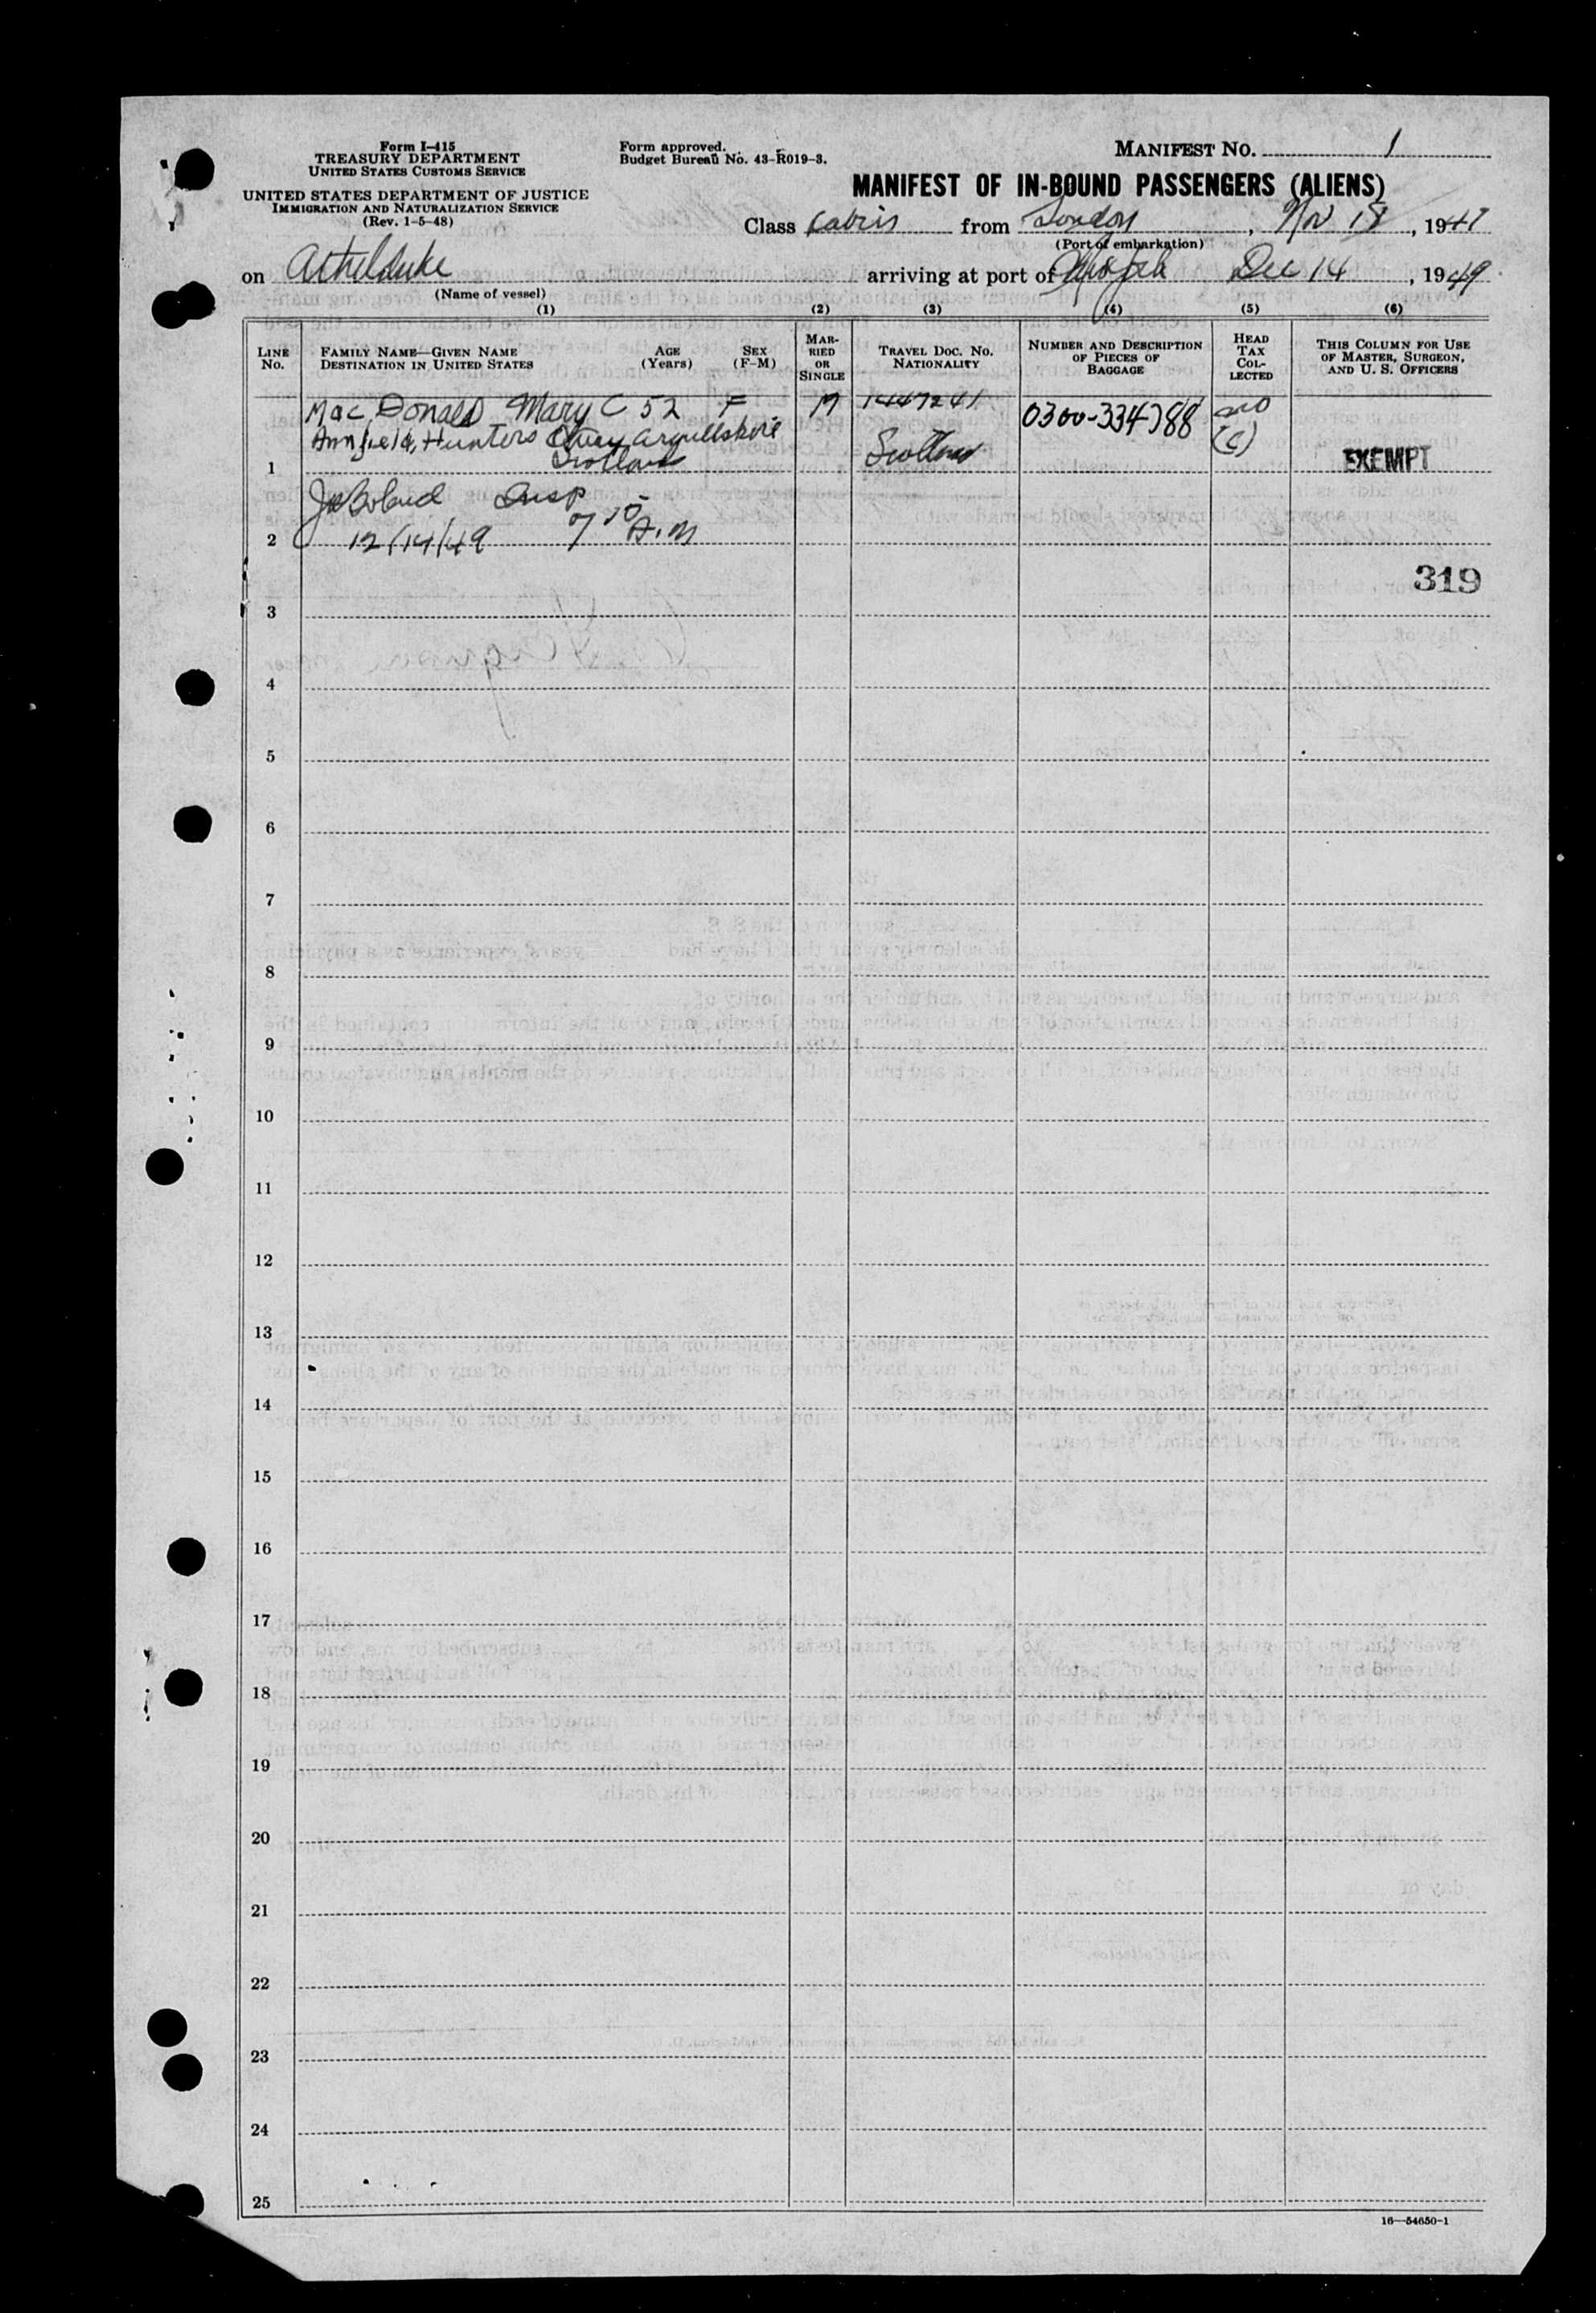 Form I-415
TREASURY DEPARTMENT
UNITED STATES CUSTOMS SERVICE
UNITED STATES DEPARTMENT OF JUSTICE
IMMIGRATION AND NATURALIZATION SERVICE
(Rev. 1-5-48)
Form approved.
Budget Bureau No. 43-R019-3.
MANIFEST NO. 1
MANIFEST OF IN-BOUND PASSENGERS (ALIENS)
Class from London, Nov 18, 1947
(Port of embarkation)
on Athelduke arriving at port of Norfolk Dec 14, 1949
(Name of vessel)
(1) (2) (3) (4) (5) (6)
LINE No.
FAMILY NAME—GIVEN NAME
DESTINATION IN UNITED STATES
AGE (Years)
SEX (F-M)
MARRIED OR SINGLE
TRAVEL DOC. NO.
NATIONALITY
NUMBER AND DESCRIPTION OF PIECES OF BAGGAGE
HEAD TAX COLLECTED
THIS COLUMN FOR USE OF MASTER, SURGEON, AND U. S. OFFICERS
MacDonald Mary C 52 F M 1447241 0300-334788 no
Annfield, Hunters Quay Argyllshire (C)
Scotland Scotland EXEMPT
1
Insp
2 12/14/49 7 10 A.M
319
3
4
5
6
7
8
9
10
11
12
13
14
15
16
17
18
19
20
21
22
23
24
25
16—54650-1